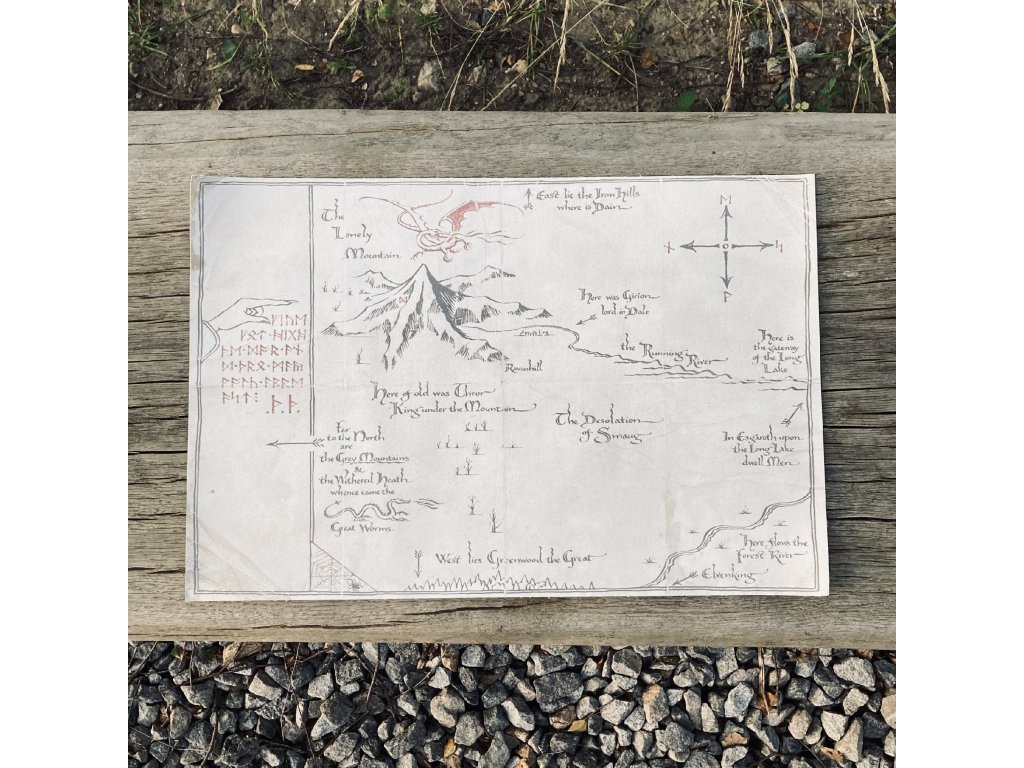 The
Lonely
Mountain
East lie the Iron Hills
where is Dain
ᛖ
ᚾ
ᛋ
ᚹ
ᛞ
ᚠᛁᚢᛖ
Here was Girion
lord in Dale
the Running River
Here is
the gateway
of the Long
Lake
Ravenhill
Here of old was Thror
King under the Mountain
The Desolation
of Smaug
Far
to the North
are
the Grey Mountains
&
the Withered Heath
whence came the
Great Worms
In Esgaroth upon
the Long Lake
dwell Men
Here flows the
Forest River
Elvenking
West lies Greenwood the Great